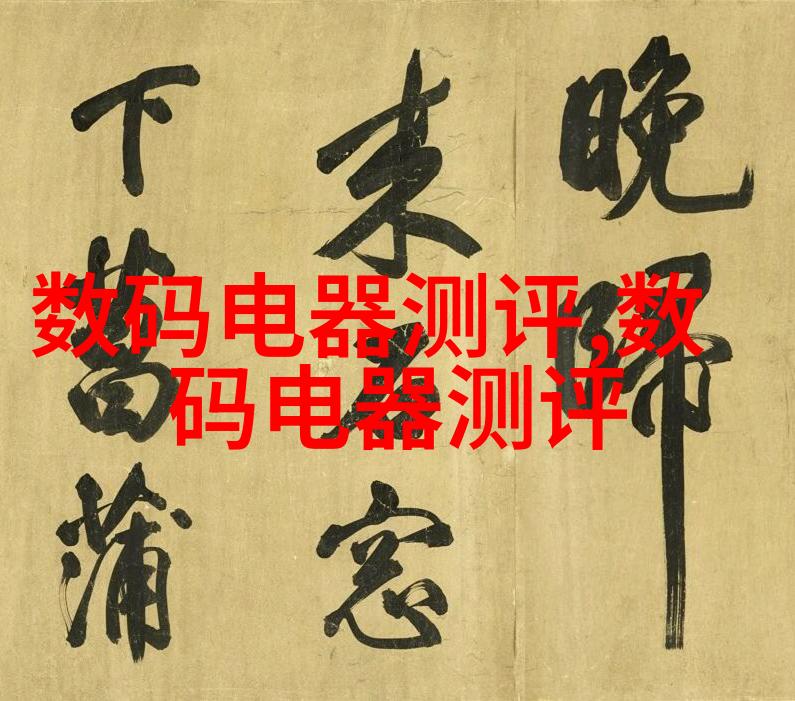 数码电器测评,数
码电器测评
晚歸
来窓
下菖蒲